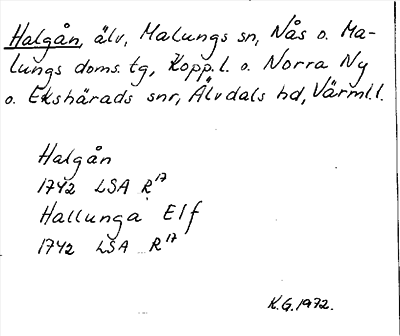 Halgån, älv, Malungs sn, Nås o. Ma-
lungs doms. tg, Kopp.l. o. Norra Ny
o. Ekshärads snr, Älvdals hd, Värml.l.
Halgån
1742 LSA R17
Hallunga Elf
1742 LSA R17
K.G. 1972.